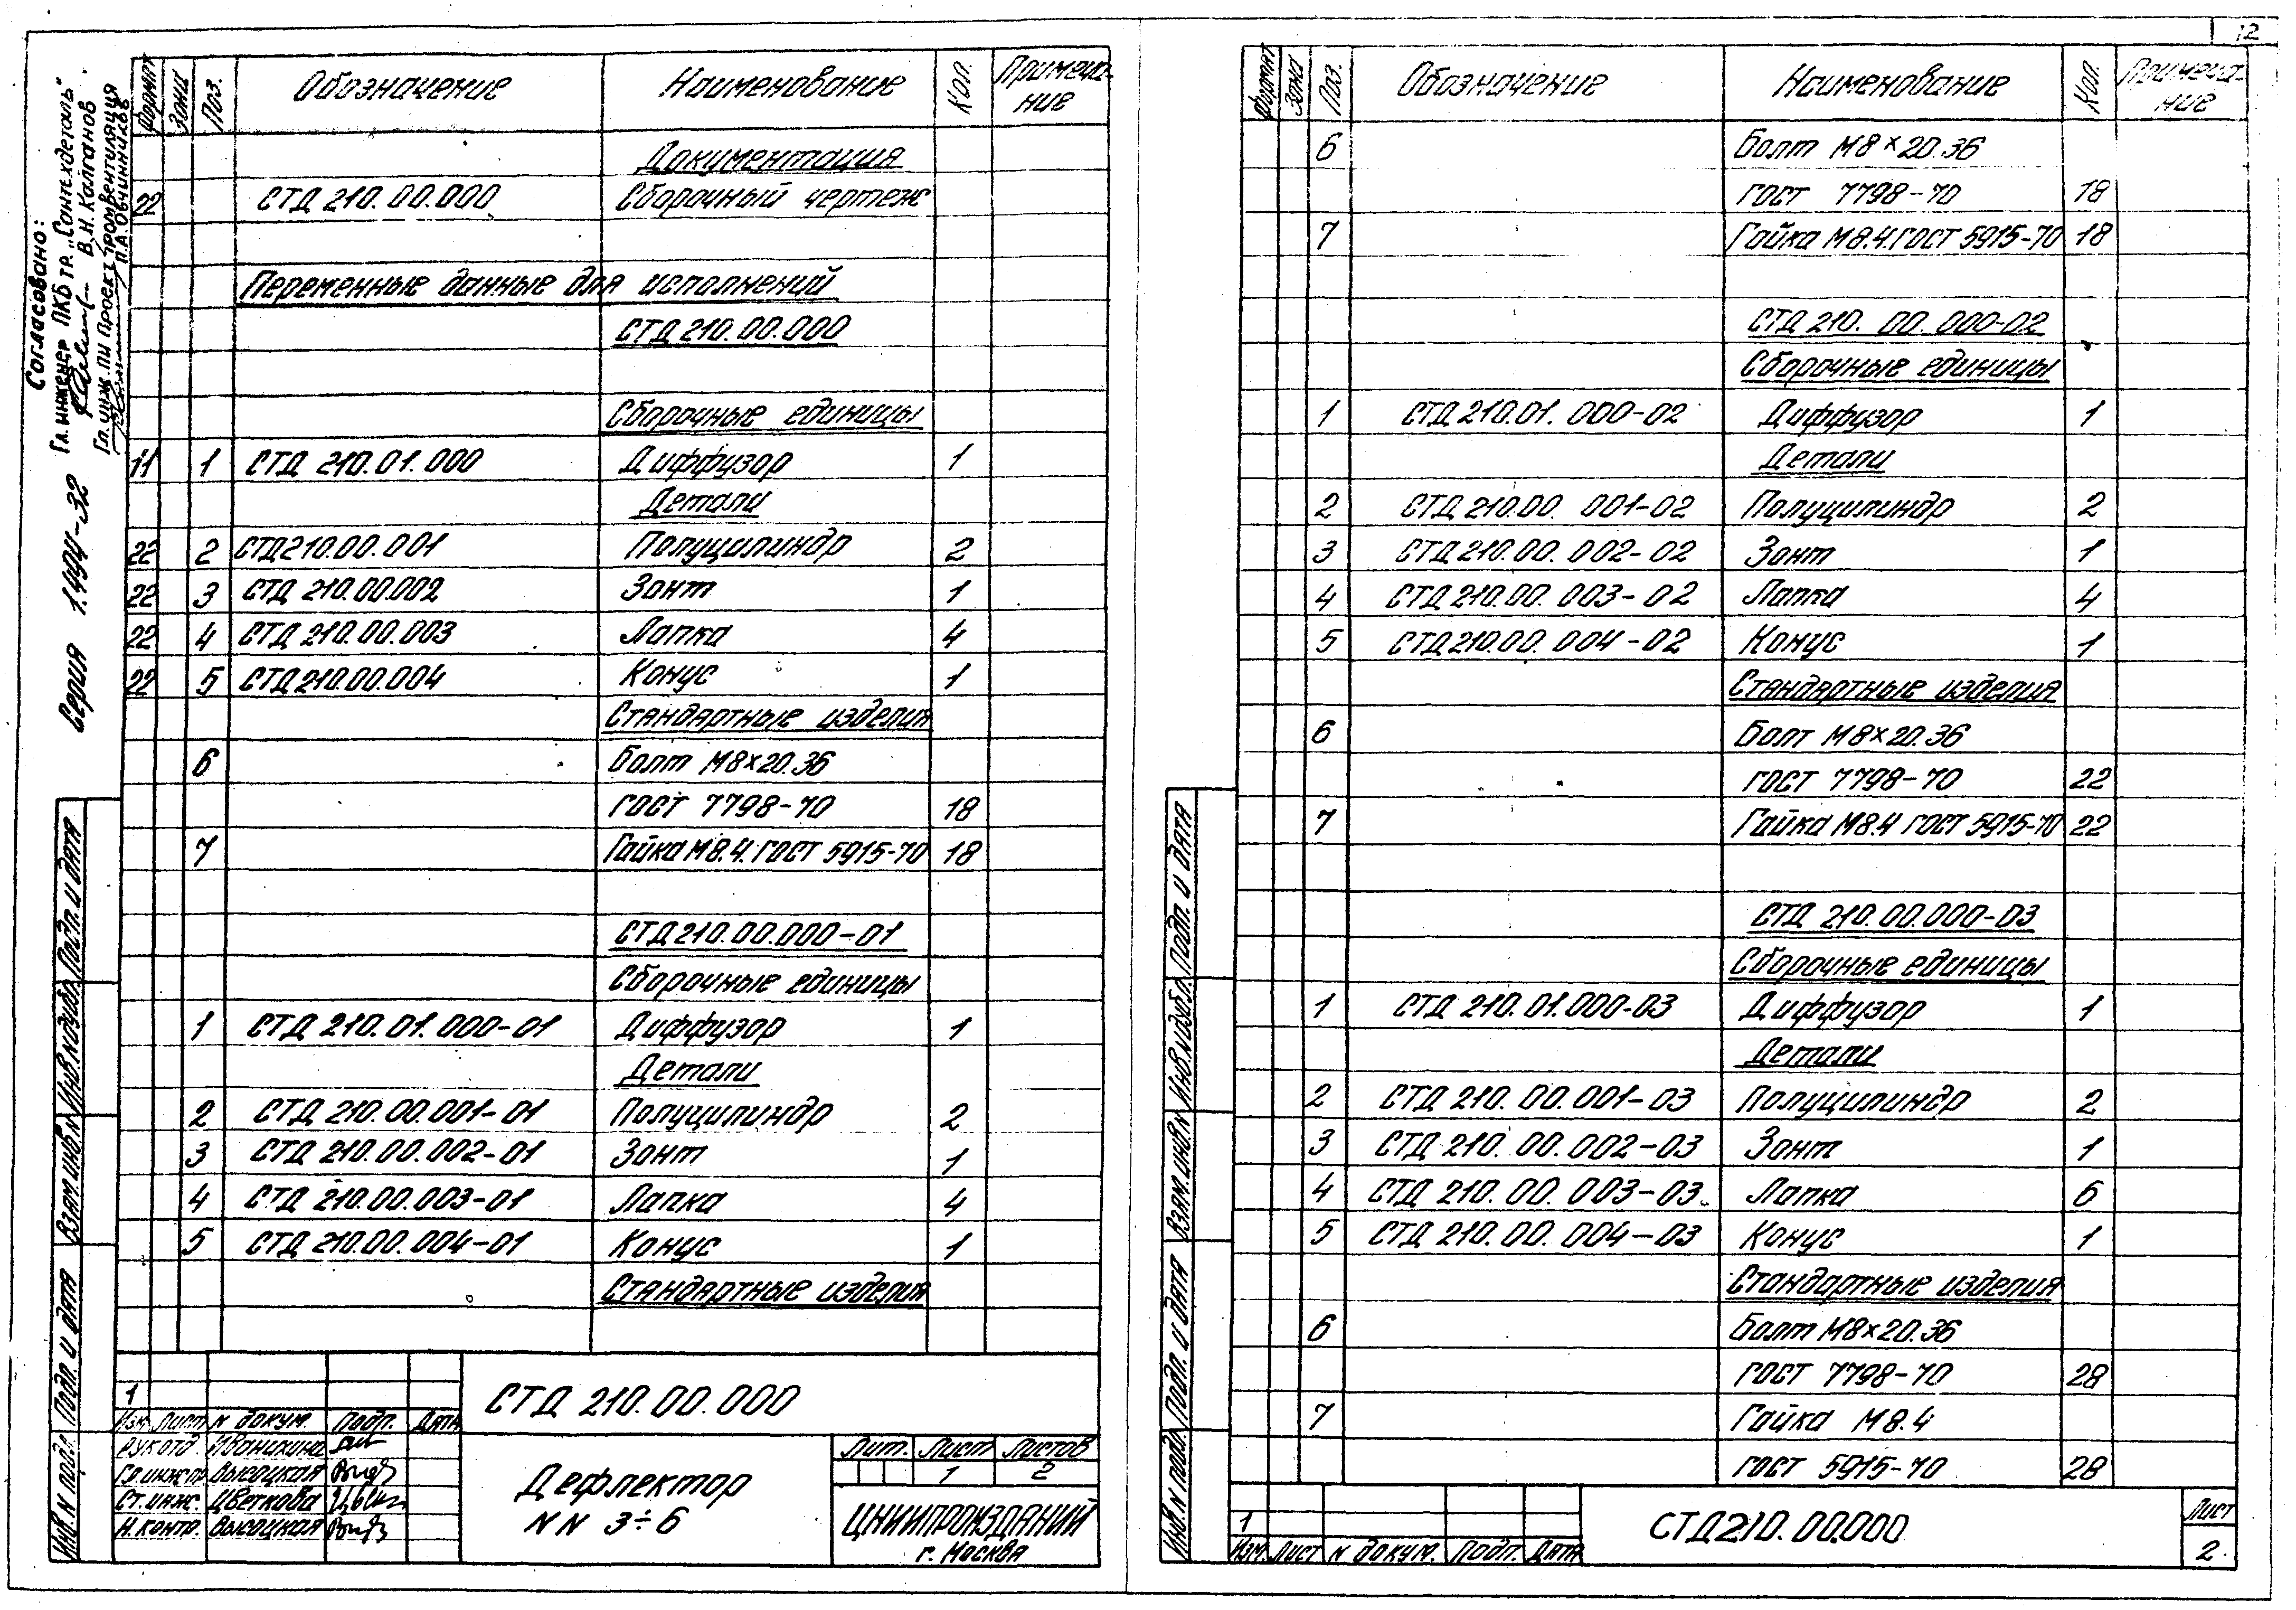 12
Согласовано:
Гл. инженер ПКБ тр. "Сантехдеталь"
В.Н. Колганов
Гл. инж. ПИ Проектпромвентиляция
П.А. Овчинников
Серия 1.494-32
Формат Зона Поз. Обозначение Наименование Кол. Примеча-
ние
Документация
22 СТД 210.00.000 Сборочный чертеж
Переменные данные для исполнений
СТД 210.00.000
Сборочные единицы
11 1 СТД 210.01.000 Диффузор 1
Детали
22 2 СТД210.00.001 Полуцилиндр 2
22 3 СТД 210.00.002 Зонт 1
22 4 СТД 210.00.003 Лапка 4
22 5 СТД 210.00.004 Конус 1
Стандартные изделия
6 Болт М8×20.36
ГОСТ 7798-70 18
7 Гайка М8.4.ГОСТ 5915-70 18
СТД 210.00.000-01
Сборочные единицы
1 СТД 210.01.000-01 Диффузор 1
Детали
2 СТД 210.00.001-01 Полуцилиндр 2
3 СТД 210.00.002-01 Зонт 1
4 СТД 210.00.003-01 Лапка 4
5 СТД 210.00.004-01 Конус 1
Стандартные изделия
Инв. N подл. Подп. и дата Взам. инв. N Инв. N дубл. Подп. и дата
1
Изм. Лист N докум. Подп. Дата
Рук отд. Иванихина
Гл. инж. пр. Высоцкая
Ст. инж. Цветкова
Н. контр. Высоцкая
СТД 210.00.000
Дефлектор
NN 3÷6
Лит. Лист Листов
1 2
ЦНИИПРОМЗДАНИЙ
г. Москва
Формат Зона Поз. Обозначение Наименование Кол. Примеча-
ние
6 Болт М8×20.36
ГОСТ 7798-70 18
7 Гайка М8.4.ГОСТ 5915-70 18
СТД 210.00.000-02
Сборочные единицы
1 СТД 210.01.000-02 Диффузор 1
Детали
2 СТД 210.00.001-02 Полуцилиндр 2
3 СТД 210.00.002-02 Зонт 1
4 СТД 210.00.003-02 Лапка 4
5 СТД 210.00.004-02 Конус 1
Стандартные изделия
6 Болт М8×20.36
ГОСТ 7798-70 22
7 Гайка М8.4 ГОСТ 5915-70 22
СТД 210.00.000-03
Сборочные единицы
1 СТД 210.01.000-03 Диффузор 1
Детали
2 СТД 210.00.001-03 Полуцилиндр 2
3 СТД 210.00.002-03 Зонт 1
4 СТД 210.00.003-03 Лапка 6
5 СТД 210.00.004-03 Конус 1
Стандартные изделия
6 Болт М8×20.36
ГОСТ 7798-70 28
7 Гайка М8.4
ГОСТ 5915-70 28
Инв. N подл. Подп. и дата Взам. инв. N Инв. N дубл. Подп. и дата
1
Изм. Лист N докум. Подп. Дата
СТД210.00.000
Лист
2